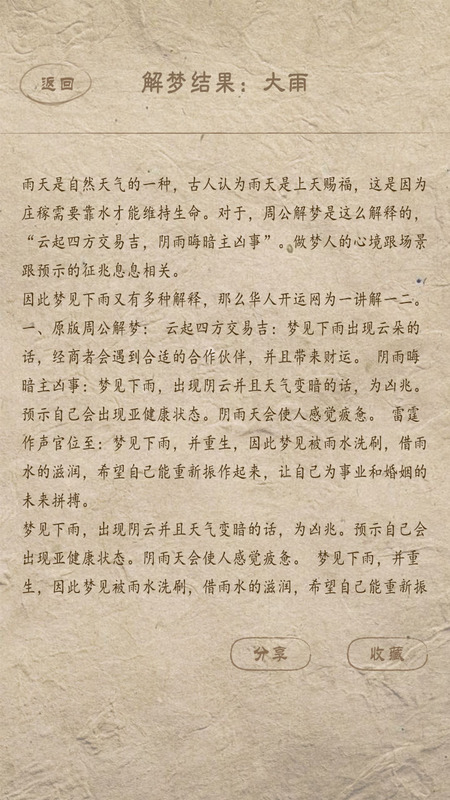 返回
解梦结果：大雨
雨天是自然天气的一种，古人认为雨天是上天赐福，这是因为
庄稼需要靠水才能维持生命。对于，周公解梦是这么解释的，
“云起四方交易吉，阴雨晦暗主凶事”。做梦人的心境跟场景
跟预示的征兆息息相关。
因此梦见下雨又有多种解释，那么华人开运网为一讲解一二。
一、原版周公解梦： 云起四方交易吉：梦见下雨出现云朵的
话，经商者会遇到合适的合作伙伴，并且带来财运。 阴雨晦
暗主凶事：梦见下雨，出现阴云并且天气变暗的话，为凶兆。
预示自己会出现亚健康状态。阴雨天会使人感觉疲惫。 雷霆
作声官位至：梦见下雨，并重生，因此梦见被雨水洗刷，借雨
水的滋润，希望自己能重新振作起来，让自己为事业和婚姻的
未来拼搏。
梦见下雨，出现阴云并且天气变暗的话，为凶兆。预示自己会
出现亚健康状态。阴雨天会使人感觉疲惫。 梦见下雨，并重
生，因此梦见被雨水洗刷，借雨水的滋润，希望自己能重新振
分享
收藏